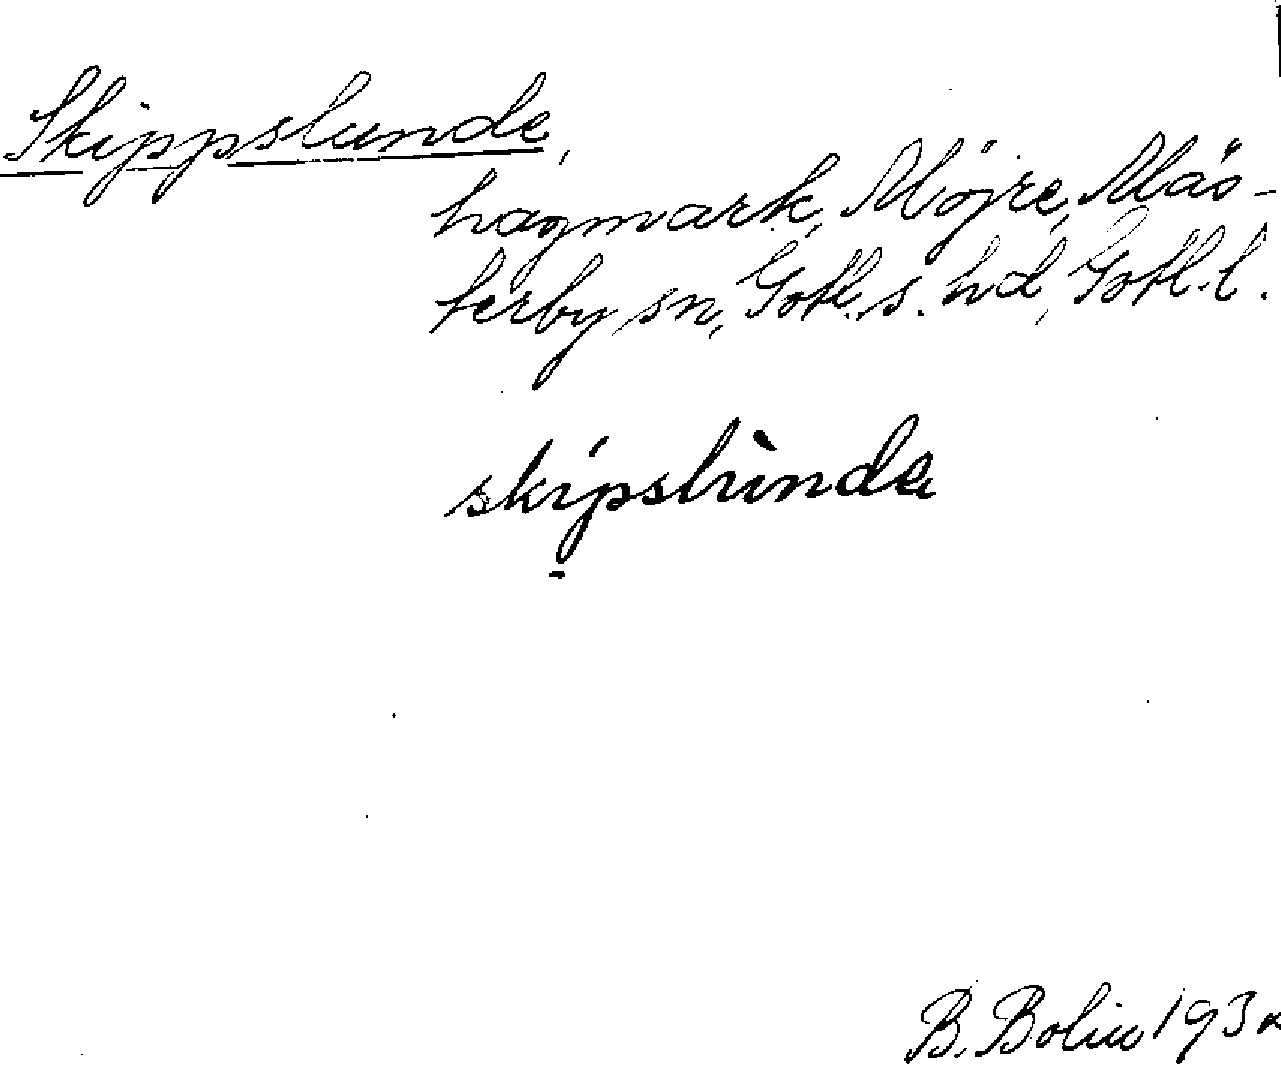 Skippslunde,
hagmark, Möjre, Mäs-
terby sn, Gotl. s. hd, Gotl. l.
skipslùnda
B. Bolin 193